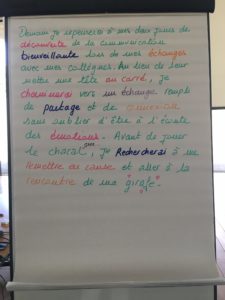 Demain je repenserai à mes deux jours de
découverte de la communication
bienveillante lors de mes échanges
avec mes collègues. Au lieu de leur
mettre une tête au carré, je
cheminerai vers un échange rempli
de partage et de
sans oublier d'être à l'écoute
des émotions. Avant de jouer
le chacal, je Rechercherai à me
remettre en cause et aller à la
rencontre de ma girafe.